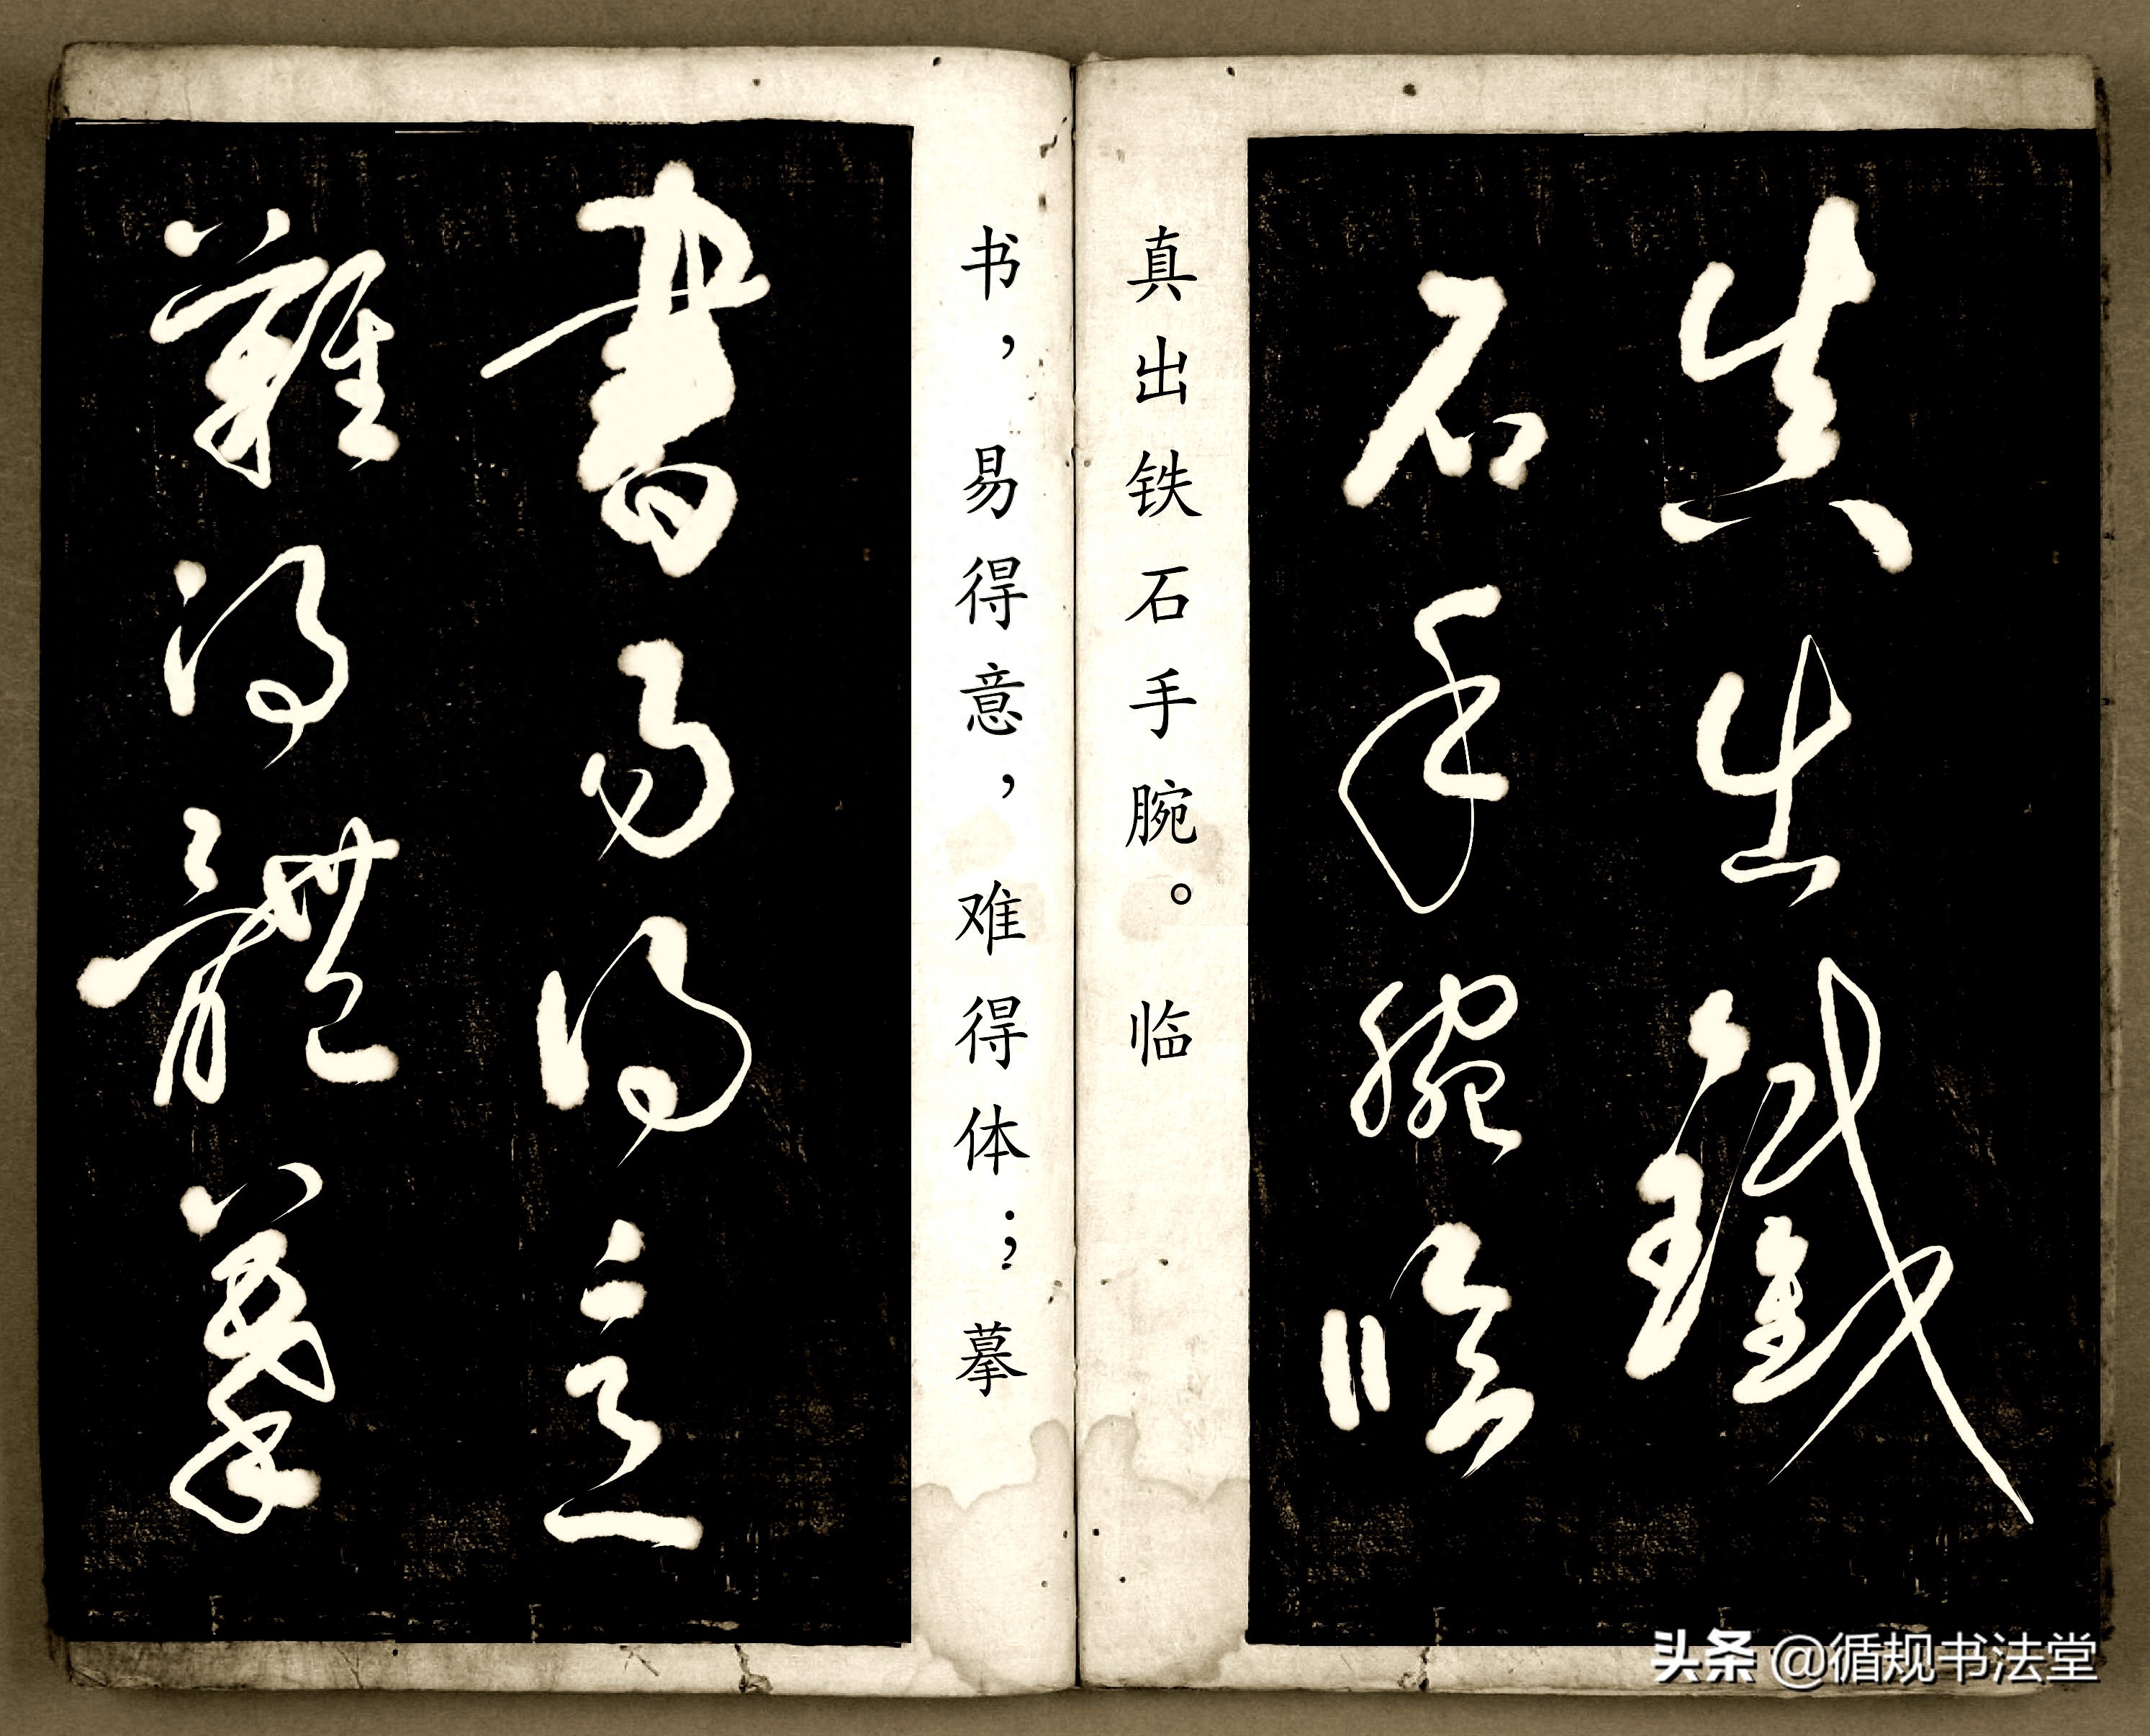 真出鐵
石手腕臨
真出铁石手腕。临
书，易得意，难得体；摹
書易得意
難得體摹
头条 @循规书法堂